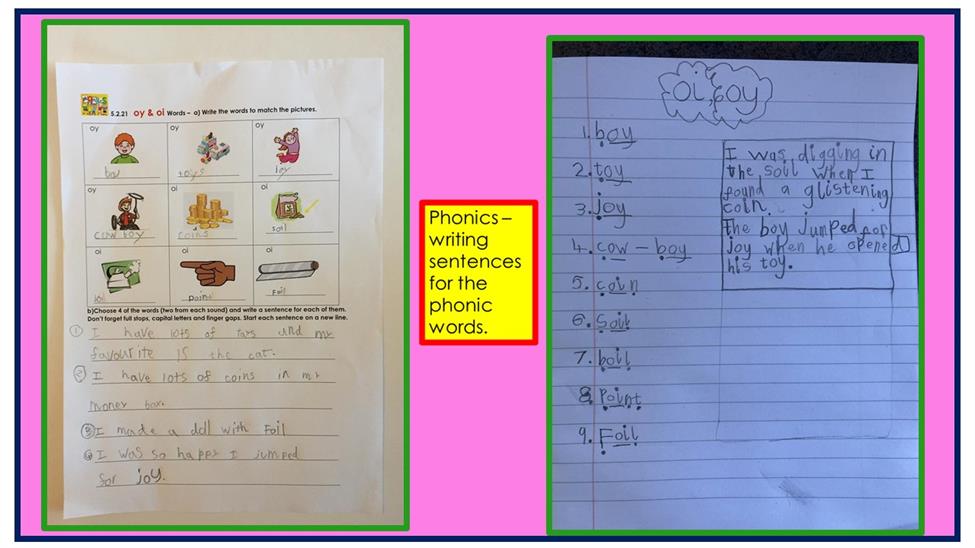 5.2.21 oy & oi Words – a) Write the words to match the pictures.
oy oy oy
boy toys joy
oy oi oi
cow boy coins soil
oi oi oi
boil point Foil
b)Choose 4 of the words (two from each sound) and write a sentence for each of them.
Don't forget full stops, capital letters and finger gaps. Start each sentence on a new line.
1 I have lots of and my
favourite is the cat.
2 I have lots of coins in my
money box.
3 I made a doll with Foil
4 I was so happy I jumped
for joy.
Phonics –
writing
sentences
for the
phonic
words.
oi, oy
1. boy
2. toy
3. joy
4. cow - boy
5. coin
6. Soil
7. boil
8. Point
9. Foil
I was digging in
the soil when I
found a glistening
coin.
The boy jumped for
joy when he opened
his toy.